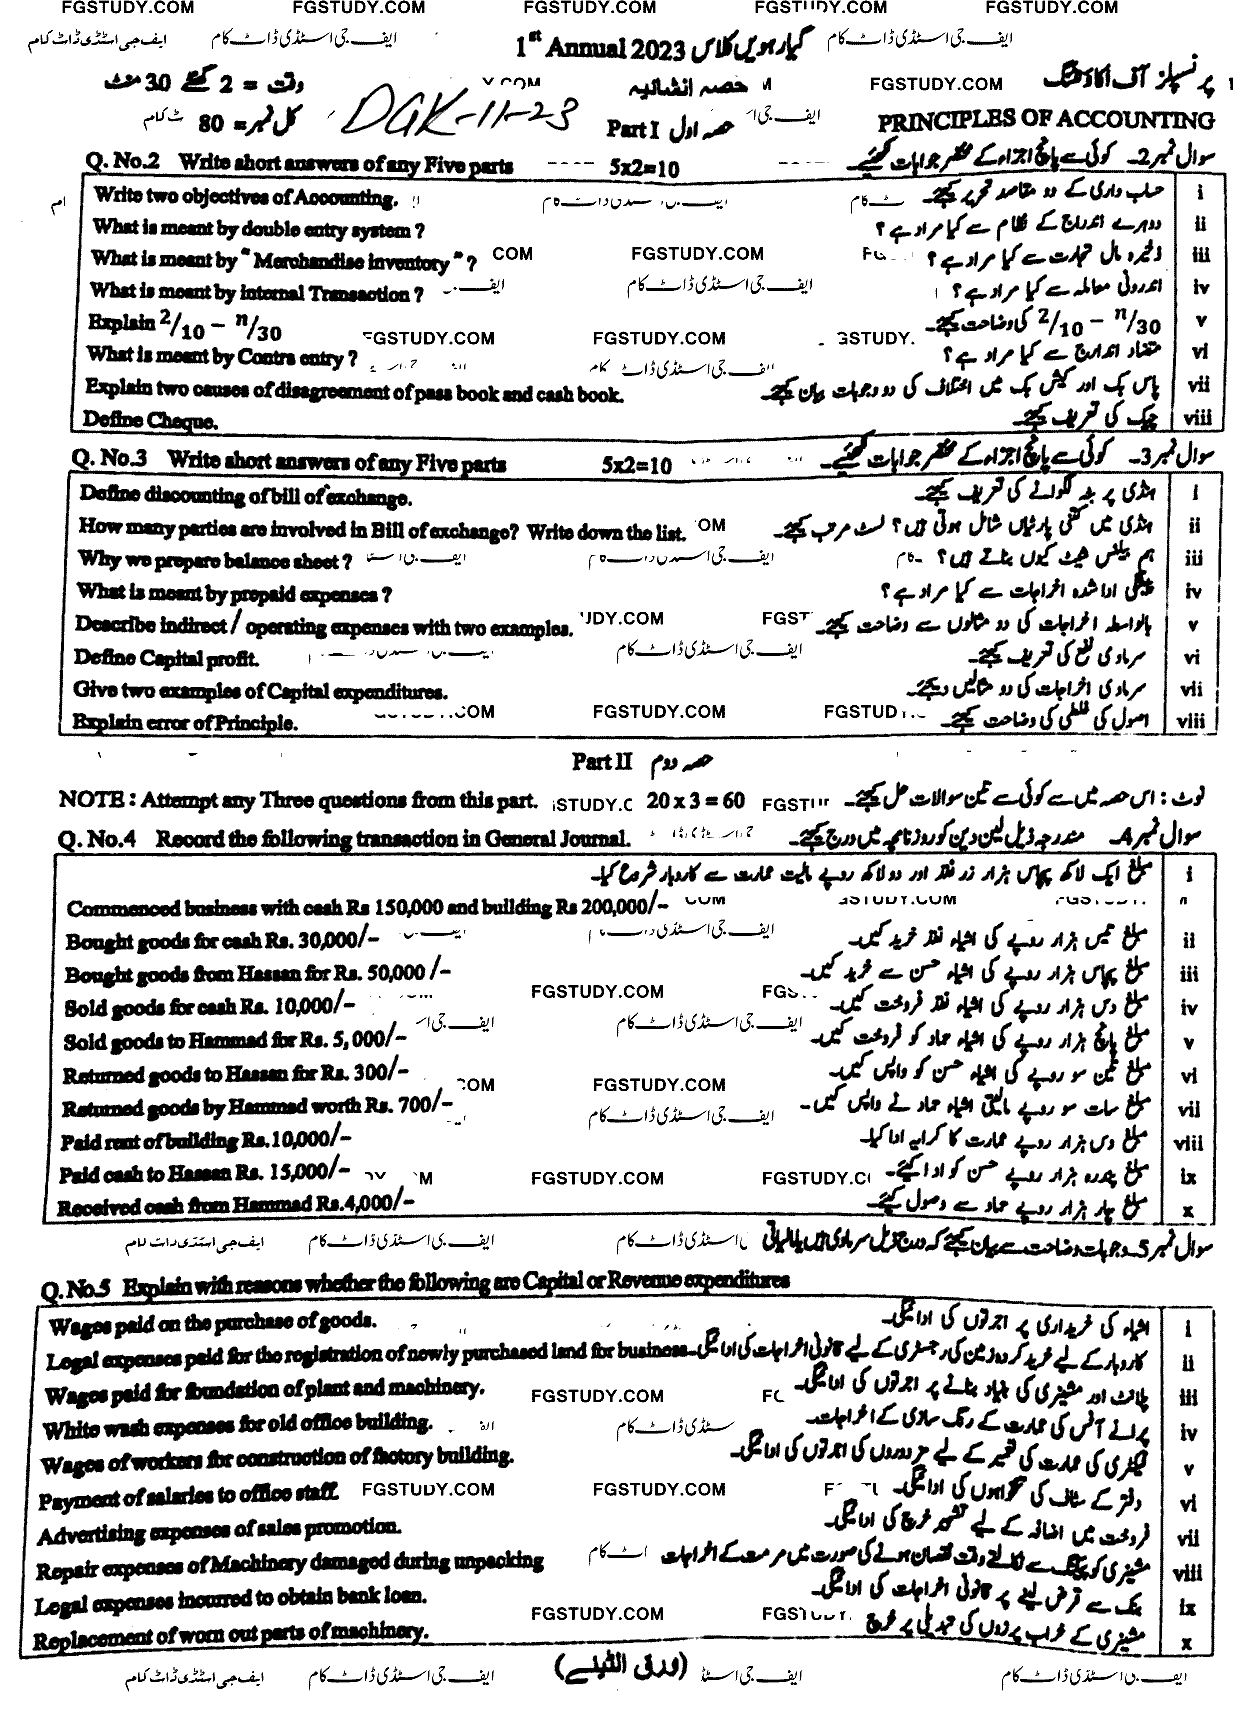 FGSTUDY.COM FGSTUDY.COM FGSTUDY.COM FGSTUDY.COM FGSTUDY.COM
ایف جی اسٹڈی ڈاٹ کام ایف جی اسٹڈی ڈاٹ کام 1st Annual 2023 گیارہویں کلاس ایف جی اسٹڈی ڈاٹ کام
وقت = 2 گھنٹے 30 منٹ حصہ انشائیہ FGSTUDY.COM پرنسپلز آف اکاؤنٹنگ
کل نمبر = 80 DGK-11-23 Part I حصہ اول PRINCIPLES OF ACCOUNTING
Q. No.2 Write short answers of any Five parts ---- 5x2=10 سوال نمبر 2۔ کوئی سے پانچ اجزاء کے مختصر جوابات لکھئے۔
Write two objectives of Accounting. حساب داری کے دو مقاصد تحریر کیجئے۔ i
What is meant by double entry system ? دوہرے اندراج کے نظام سے کیا مراد ہے ؟ ii
What is meant by " Merchandise inventory " ? COM FGSTUDY.COM ذخیرہ مال تجارت سے کیا مراد ہے ؟ iii
What is meant by internal Transaction ? ایف جی اسٹڈی ڈاٹ کام اندرونی معاملہ سے کیا مراد ہے ؟ iv
Explain 2/10 - n/30 2/10 - n/30 کی وضاحت کیجئے۔ v
FGSTUDY.COM FGSTUDY.COM GSTUDY.
What is meant by Contra entry ? متضاد اندراج سے کیا مراد ہے ؟ vi
Explain two causes of disagreement of pass book and cash book. پاس بک اور کیش بک میں اختلاف کی دو وجوہات بیان کیجئے۔ vii
Define Cheque. چیک کی تعریف کیجئے۔ viii
Q. No.3 Write short answers of any Five parts 5x2=10 سوال نمبر 3۔ کوئی سے پانچ اجزاء کے مختصر جوابات لکھئے۔
Define discounting of bill of exchange. ہنڈی پر بٹہ لگوانے کی تعریف کیجئے۔ i
How many parties are involved in Bill of exchange? Write down the list. ہنڈی میں کتنی پارٹیاں شامل ہوتی ہیں؟ لسٹ مرتب کیجئے۔ ii
Why we prepare balance sheet ? ہم بیلنس شیٹ کیوں بناتے ہیں؟ iii
What is meant by prepaid expenses ? پیشگی ادا شدہ اخراجات سے کیا مراد ہے ؟ iv
Describe indirect / operating expenses with two examples. بالواسطہ اخراجات کی دو مثالوں سے وضاحت کیجئے۔ v
Define Capital profit. ایف جی اسٹڈی ڈاٹ کام سرمادی نفع کی تعریف کیجئے۔ vi
Give two examples of Capital expenditures. سرمادی اخراجات کی دو مثالیں دیجئے۔ vii
Explain error of Principle. FGSTUDY.COM اصول کی غلطی کی وضاحت کیجئے۔ viii
Part II حصہ دوم
NOTE : Attempt any Three questions from this part. 20 x 3 = 60 نوٹ : اس حصہ میں سے کوئی سے تین سوالات حل کیجئے۔
Q. No.4 Record the following transaction in General Journal. سوال نمبر 4۔ مندرجہ ذیل لین دین کو روزنامچہ میں درج کیجئے۔
مبلغ ایک لاکھ پچاس ہزار زر نقد اور دو لاکھ روپے مالیت عمارت سے کاروبار شروع کیا۔ i
Commenced business with cash Rs 150,000 and building Rs 200,000/-
Bought goods for cash Rs. 30,000/- مبلغ تیس ہزار روپے کی اشیاء نقد خرید کیں۔ ii
Bought goods from Hassan for Rs. 50,000 /- مبلغ پچاس ہزار روپے کی اشیاء حسن سے خرید کیں۔ iii
Sold goods for cash Rs. 10,000/- FGSTUDY.COM مبلغ دس ہزار روپے کی اشیاء نقد فروخت کیں۔ iv
Sold goods to Hammad for Rs. 5, 000/- ایف جی اسٹڈی ڈاٹ کام مبلغ پانچ ہزار روپے کی اشیاء حماد کو فروخت کیں۔ v
Returned goods to Hassan for Rs. 300/- COM FGSTUDY.COM مبلغ تین سو روپے کی اشیاء حسن کو واپس کیں۔ vi
Returned goods by Hammad worth Rs. 700/- ایف جی اسٹڈی ڈاٹ کام مبلغ سات سو روپے مالیتی اشیاء حماد نے واپس کیں۔ vii
Paid rent of building Rs.10,000/- مبلغ دس ہزار روپے عمارت کا کرایہ ادا کیا۔ viii
Paid cash to Hassan Rs. 15,000/- FGSTUDY.COM مبلغ پندرہ ہزار روپے حسن کو ادا کیئے۔ ix
Received cash from Hammad Rs.4,000/- مبلغ چار ہزار روپے حماد سے وصول کیئے۔ x
ایف جی اسٹڈی ڈاٹ کام سوال نمبر 5۔ وجوہات وضاحت سے بیان کیجئے کہ درج ذیل سرمادی ہیں یا مالیاتی
Q. No.5 Explain with reasons whether the following are Capital or Revenue expenditures
Wages paid on the purchase of goods. اشیاء کی خریداری پر اجرتوں کی ادائیگی۔ i
Legal expenses paid for the registration of newly purchased land for business. کاروبار کے لیے خرید کردہ زمین کی رجسٹری کے لیے قانونی اخراجات کی ادائیگی۔ ii
Wages paid for foundation of plant and machinery. FGSTUDY.COM پلانٹ اور مشینری کی بنیاد بنانے پر اجرتوں کی ادائیگی۔ iii
White wash expenses for old office building. پرانے آفس کی عمارت کے رنگ سازی کے اخراجات۔ iv
Wages of workers for construction of factory building. فیکٹری کی عمارت کی تعمیر کے لیے مزدوروں کی اجرتوں کی ادائیگی۔ v
Payment of salaries to office staff. FGSTUDY.COM FGSTUDY.COM دفتر کے سٹاف کی تنخواہوں کی ادائیگی۔ vi
Advertising expenses of sales promotion. فروخت میں اضافہ کے لیے تشہیر خرچ کی ادائیگی۔ vii
Repair expenses of Machinery damaged during unpacking مشینری کو پیکنگ سے نکالتے وقت نقصان ہونے کی صورت میں مرمت کے اخراجات viii
Legal expenses incurred to obtain bank loan. بنک سے قرض لینے پر قانونی اخراجات کی ادائیگی۔ ix
FGSTUDY.COM
Replacement of worn out parts of machinery. مشینری کے خراب پرزوں کی تبدیلی پر خرچ x
ایف جی اسٹڈی ڈاٹ کام ایف جی اسٹڈی ڈاٹ کام (ورق الٹیئے) ایف جی اسٹڈی ڈاٹ کام